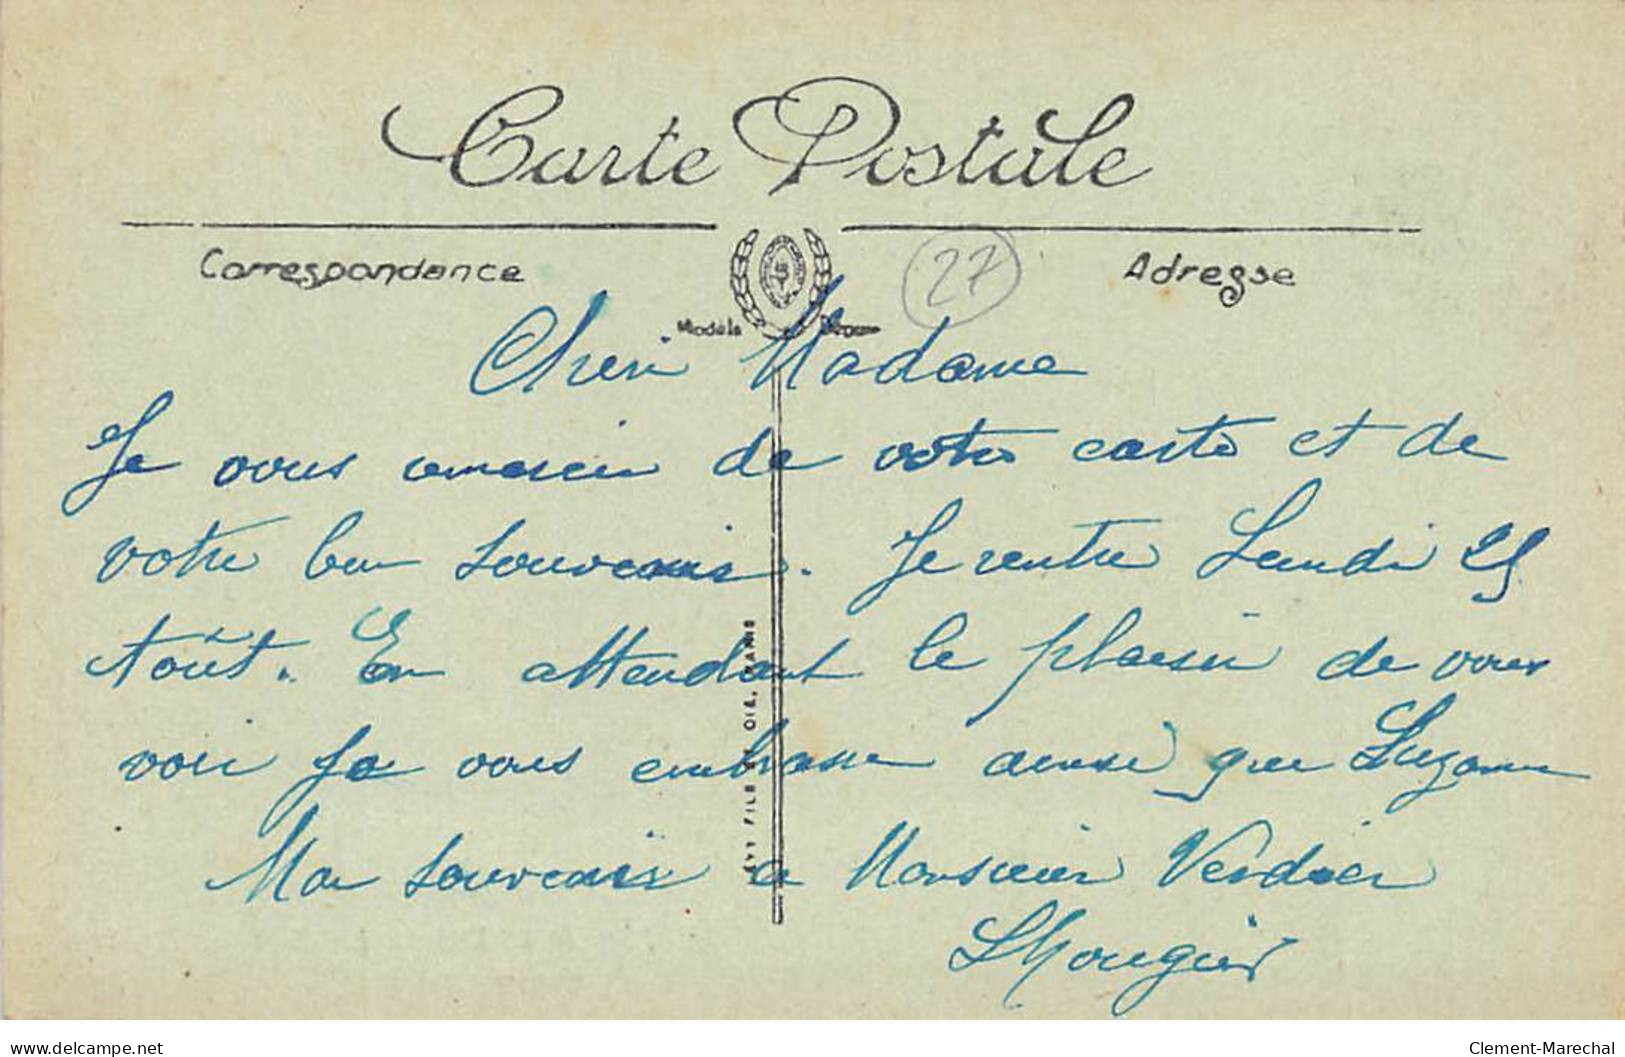 Carte Postale
Correspondance
Adresse
27
Modèle
Cheri Madame
Je vous remercie de votre carte et de
votre bon souvenir. Je rentre Lundi 25
Août. En attendant le plaisir de vous
voir Je vous embrasse ainsi que Suzanne
Mon souvenir a Monsieur Verdier
LEVY FILS ET CIE, PARIS
delcampe.net
Clement-Marechal